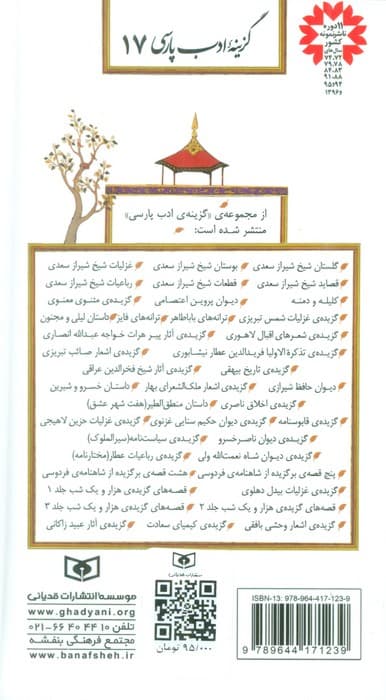 گزینهٔ ادب پارسی ۱۷
۱۱ دوره
ناشر نمونه
کشور
سال‌های
۷۴،۷۲
۷۹،۷۸
۸۴،۸۳
۹۱،۸۸
۹۵،۹۴
و۱۳۹۶
از مجموعه‌ی «گزینه‌ی ادب پارسی»
منتشر شده است:
گلستان شیخ شیراز سعدی بوستان شیخ شیراز سعدی غزلیات شیخ شیراز سعدی
قصاید شیخ شیراز سعدی قطعات شیخ شیراز سعدی رباعیات شیخ شیراز سعدی
کلیله و دمنه دیوان پروین اعتصامی گزیده‌ی مثنوی معنوی
گزیده‌ی غزلیات شمس تبریزی ترانه‌های باباطاهر ترانه‌های فایز داستان لیلی و مجنون
گزیده‌ی شعرهای اقبال لاهوری گزیده‌ی آثار پیر هرات خواجه عبدالله انصاری
گزیده‌ی تذکرة الاولیا فریدالدین عطار نیشابوری گزیده‌ی اشعار صائب تبریزی
گزیده‌ی تاریخ بیهقی گزیده‌ی آثار شیخ فخرالدین عراقی
دیوان حافظ شیرازی گزیده‌ی اشعار ملک‌الشعرای بهار داستان خسرو و شیرین
گزیده‌ی اخلاق ناصری داستان منطق‌الطیر(هفت شهر عشق)
گزیده‌ی قابوسنامه گزیده‌ی دیوان حکیم سنایی غزنوی گزیده‌ی غزلیات حزین لاهیجی
گزیده‌ی دیوان ناصرخسرو گزیده‌ی سیاست‌نامه(سیرالملوک)
گزیده‌ی دیوان شاه نعمت‌الله ولی گزیده‌ی رباعیات عطار(مختارنامه)
پنج قصه‌ی برگزیده از شاهنامه‌ی فردوسی هشت قصه‌ی برگزیده از شاهنامه‌ی فردوسی
گزیده‌ی غزلیات بیدل دهلوی قصه‌های گزیده‌ی هزار و یک شب جلد ۱
قصه‌های گزیده‌ی هزار و یک شب جلد ۲ قصه‌های گزیده‌ی هزار و یک شب جلد ۳
گزیده‌ی اشعار وحشی بافقی گزیده‌ی کیمیای سعادت گزیده‌ی آثار عبید زاکانی
موسسه انتشارات قدیانی
www.ghadyani.org
تلفن ۱۰ ۴۴ ۴۰ ۶۶-۰۲۱
مجتمع فرهنگی بنفشه
www.banafsheh.ir
انتشارات قدیانی
۹۵/۰۰۰ تومان
ISBN-13: 978-964-417-123-9
9 789644 171239